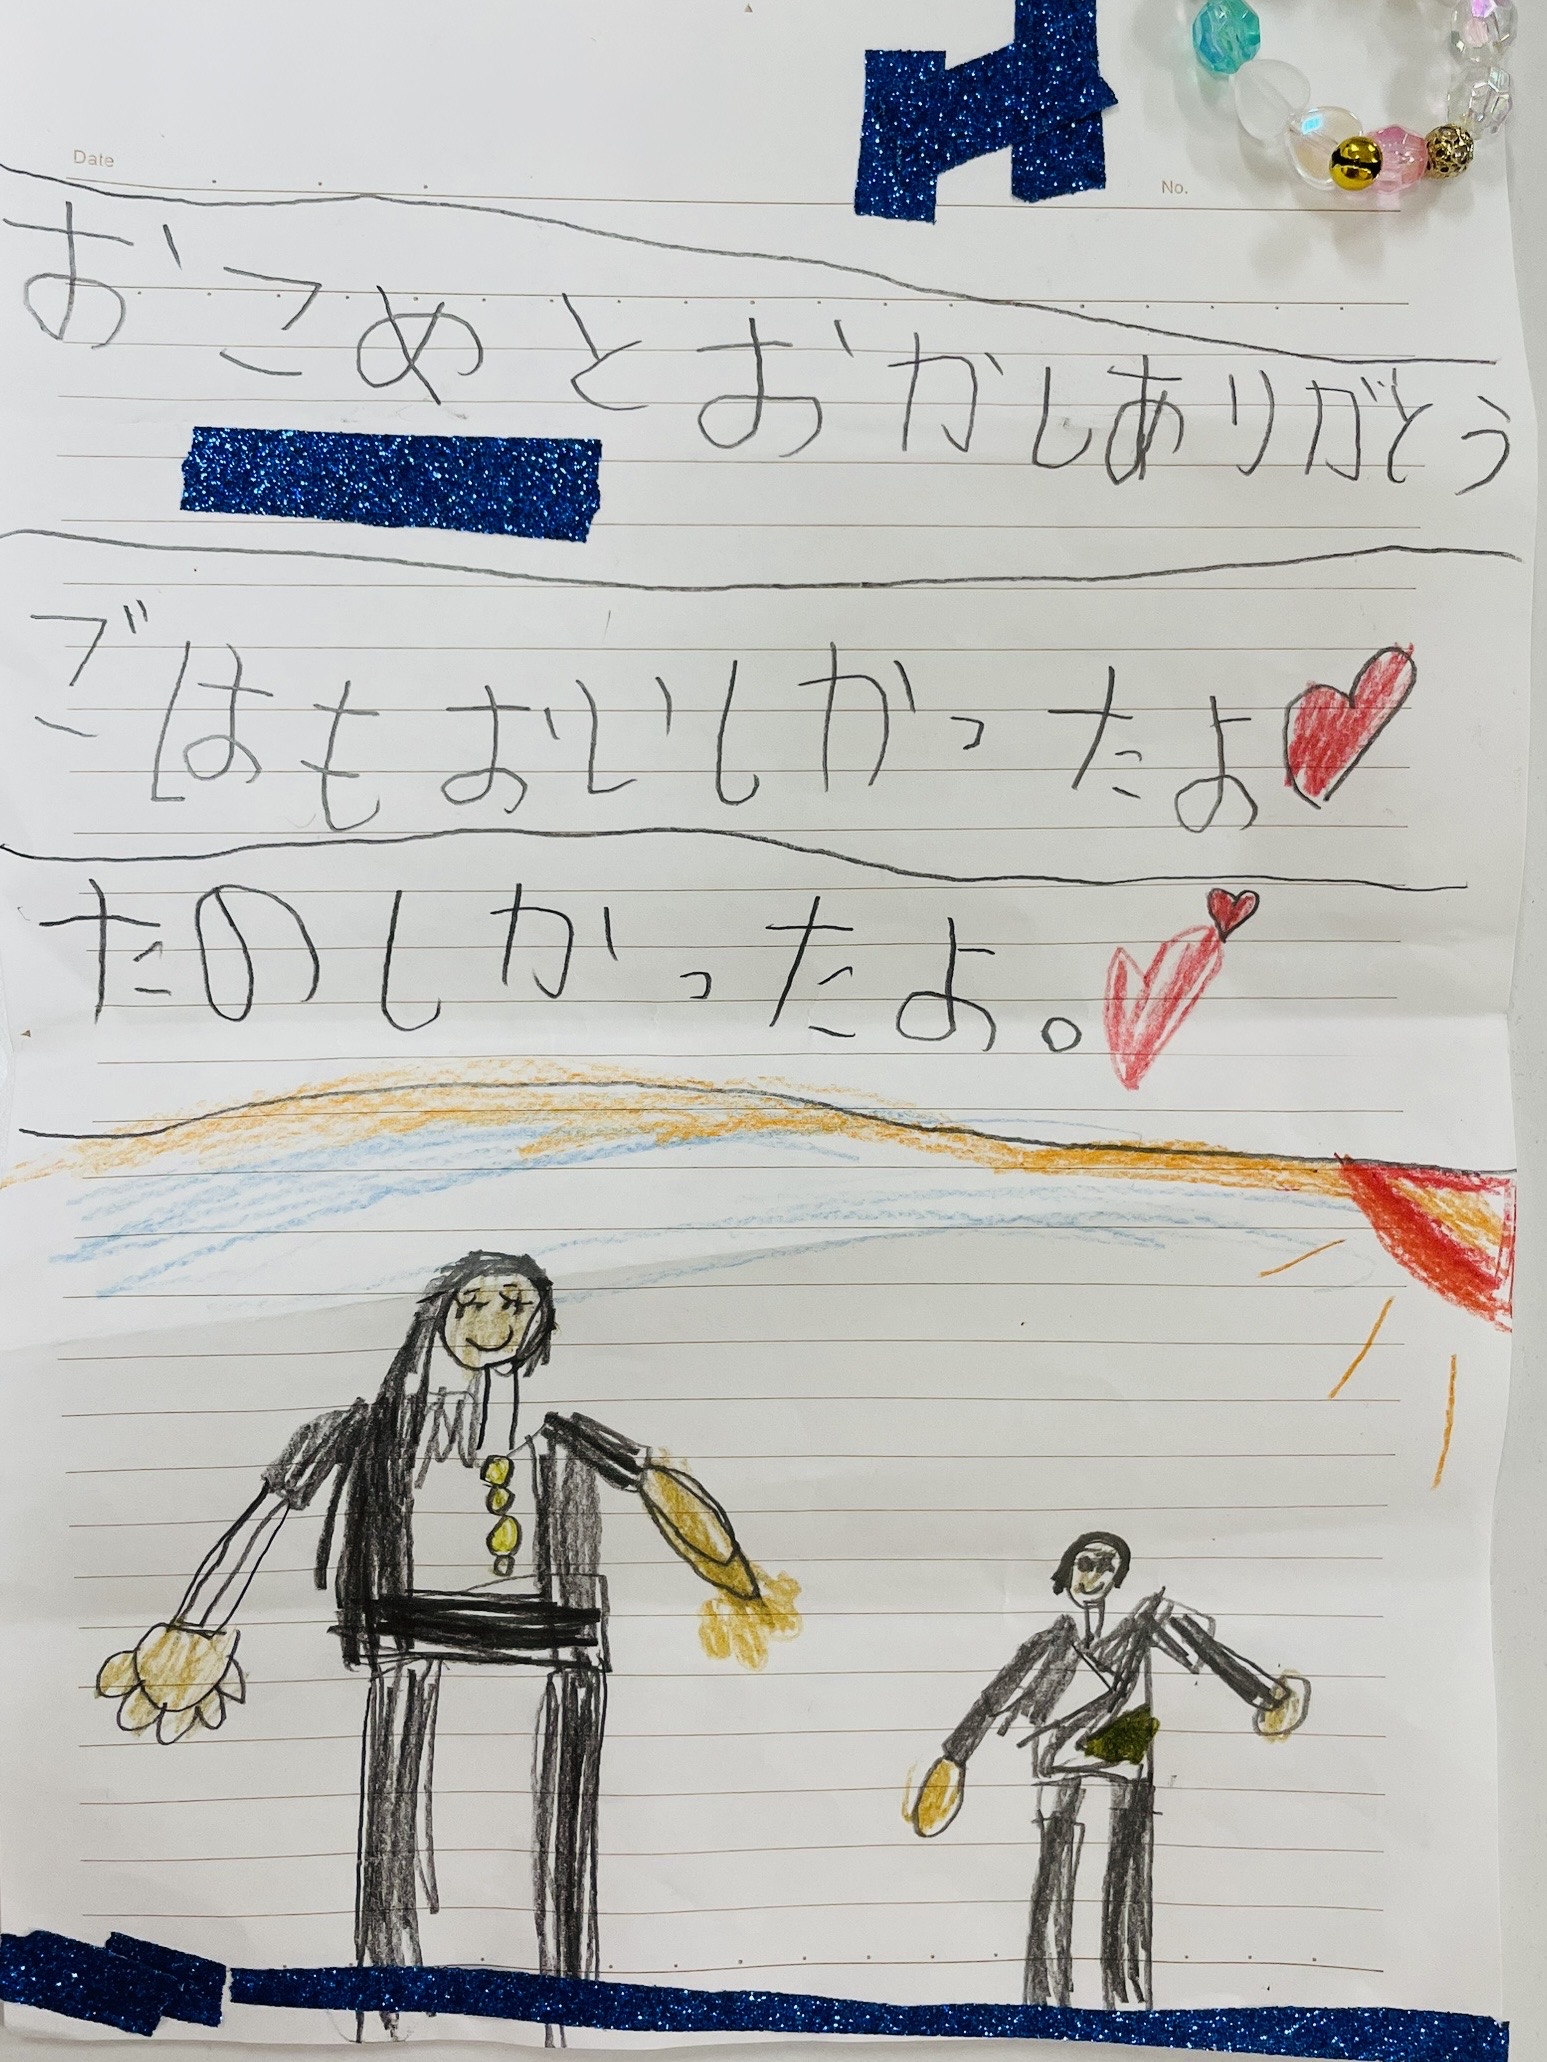 Date
No.
おこめとおかしありがとう
ごはもおいしかったよ
たのしかったよ。